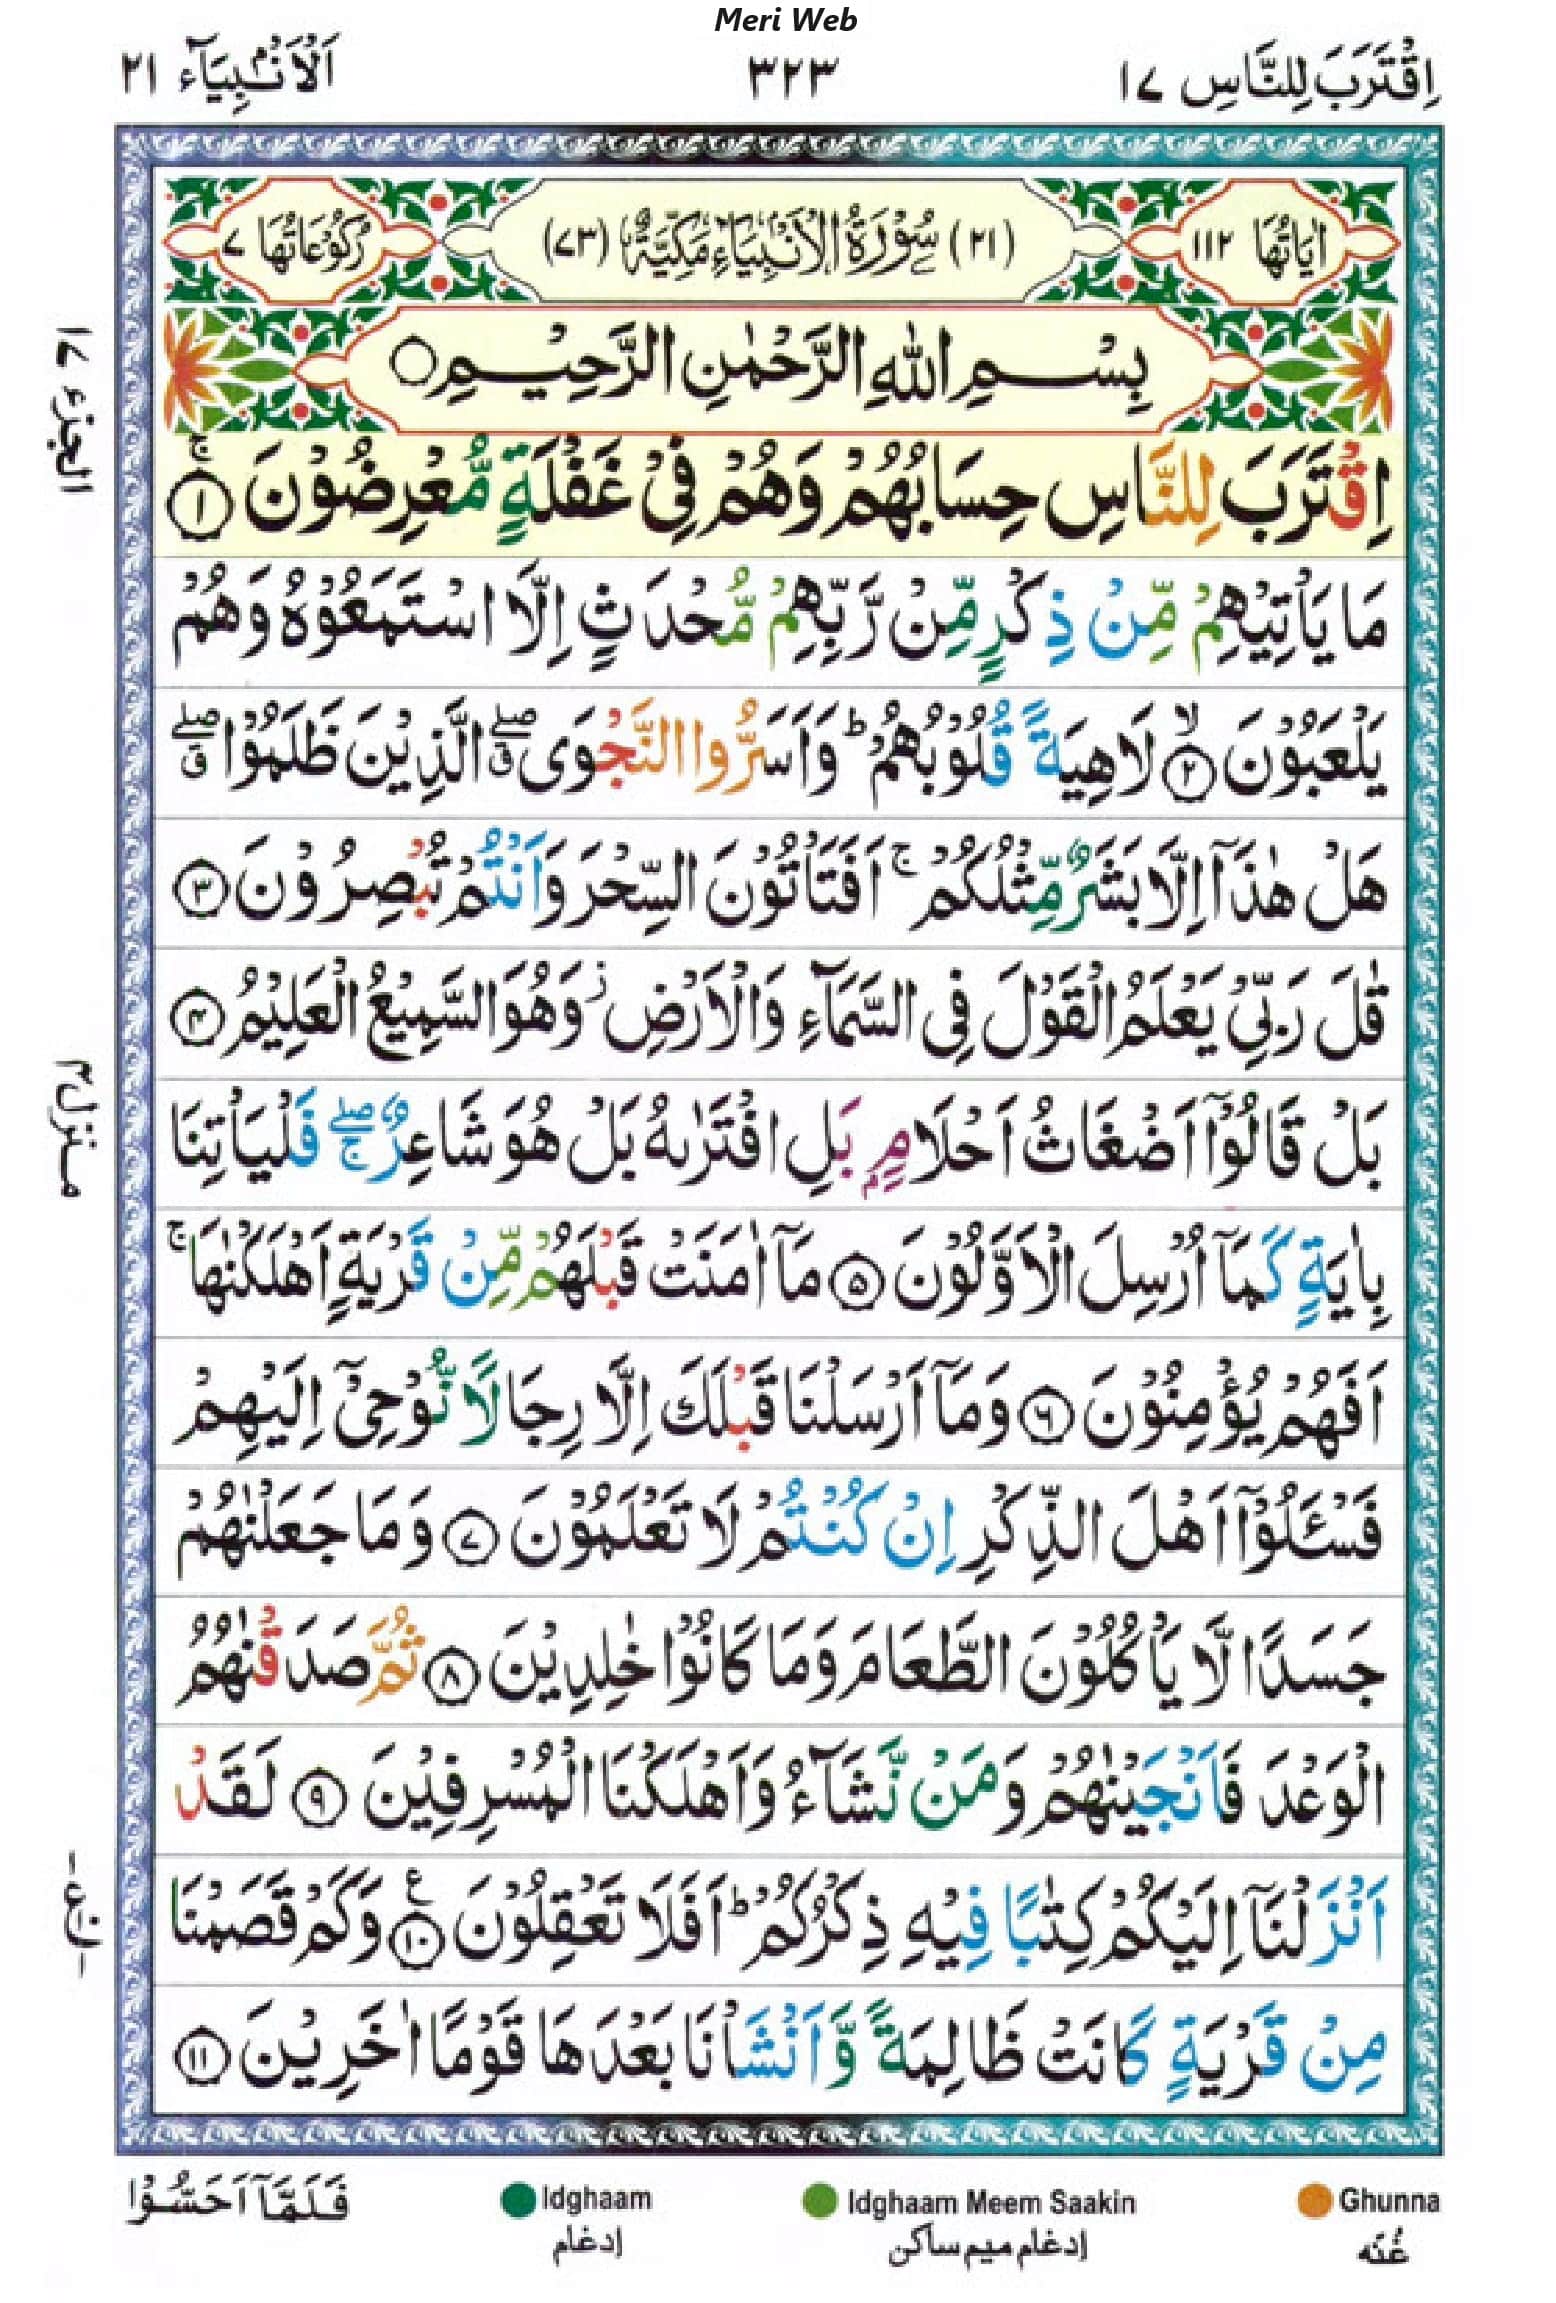 Meri Web
اِقْتَرَبَ لِلنَّاسِ ١٧
٣٢٣
اَلْاَنْۢبِيَآء ٢١
اٰيَاتُهَا ١١٢
(٢١) سُوْرَةُ الْاَنْۢبِيَآءِ مَكِّيَّةٌ (٧٣)
رُكُوْعَاتُهَا ٧
بِسْمِ اللّٰهِ الرَّحْمٰنِ الرَّحِيْمِ ۝
اِقْتَرَبَ لِلنَّاسِ حِسَابُهُمْ وَهُمْ فِيْ غَفْلَةٍ مُّعْرِضُوْنَ ۚ ١
مَا يَاْتِيْهِمْ مِّنْ ذِكْرٍ مِّنْ رَّبِّهِمْ مُّحْدَثٍ اِلَّا اسْتَمَعُوْهُ وَهُمْ
يَلْعَبُوْنَ ۙ ٢ لَاهِيَةً قُلُوْبُهُمْ ؕ وَاَسَرُّوا النَّجْوَى ۖق الَّذِيْنَ ظَلَمُوْا ۖق
هَلْ هٰذَآ اِلَّا بَشَرٌ مِّثْلُكُمْ ۚ اَفَتَاْتُوْنَ السِّحْرَ وَاَنْتُمْ تُبْصِرُوْنَ ٣
قٰلَ رَبِّيْ يَعْلَمُ الْقَوْلَ فِي السَّمَآءِ وَالْاَرْضِ ز وَهُوَ السَّمِيْعُ الْعَلِيْمُ ٤
بَلْ قَالُوْٓا اَضْغَاثُ اَحْلَامٍۭ بَلِ افْتَرٰىهُ بَلْ هُوَ شَاعِرٌ ۖج فَلْيَاْتِنَا
بِاٰيَةٍ كَمَآ اُرْسِلَ الْاَوَّلُوْنَ ٥ مَآ اٰمَنَتْ قَبْلَهُمْ مِّنْ قَرْيَةٍ اَهْلَكْنٰهَا ۚ
اَفَهُمْ يُؤْمِنُوْنَ ٦ وَمَآ اَرْسَلْنَا قَبْلَكَ اِلَّا رِجَالًا نُّوْحِيْٓ اِلَيْهِمْ
فَسْـَٔلُوْٓا اَهْلَ الذِّكْرِ اِنْ كُنْتُمْ لَا تَعْلَمُوْنَ ٧ وَمَا جَعَلْنٰهُمْ
جَسَدًا لَّا يَاْكُلُوْنَ الطَّعَامَ وَمَا كَانُوْا خٰلِدِيْنَ ٨ ثُمَّ صَدَقْنٰهُمُ
الْوَعْدَ فَاَنْجَيْنٰهُمْ وَمَنْ نَّشَآءُ وَاَهْلَكْنَا الْمُسْرِفِيْنَ ٩ لَقَدْ
اَنْزَلْنَآ اِلَيْكُمْ كِتٰبًا فِيْهِ ذِكْرُكُمْ ؕ اَفَلَا تَعْقِلُوْنَ ع ١٠ وَكَمْ قَصَمْنَا
مِنْ قَرْيَةٍ كَانَتْ ظَالِمَةً وَّاَنْشَاْنَا بَعْدَهَا قَوْمًا اٰخَرِيْنَ ١١
الجزء ١٧
منزل ٣
Ghunna
غُنَّه
Idghaam Meem Saakin
إدغام ميم ساكن
Idghaam
إدغام
فَلَمَّآ اَحَسُّوْا